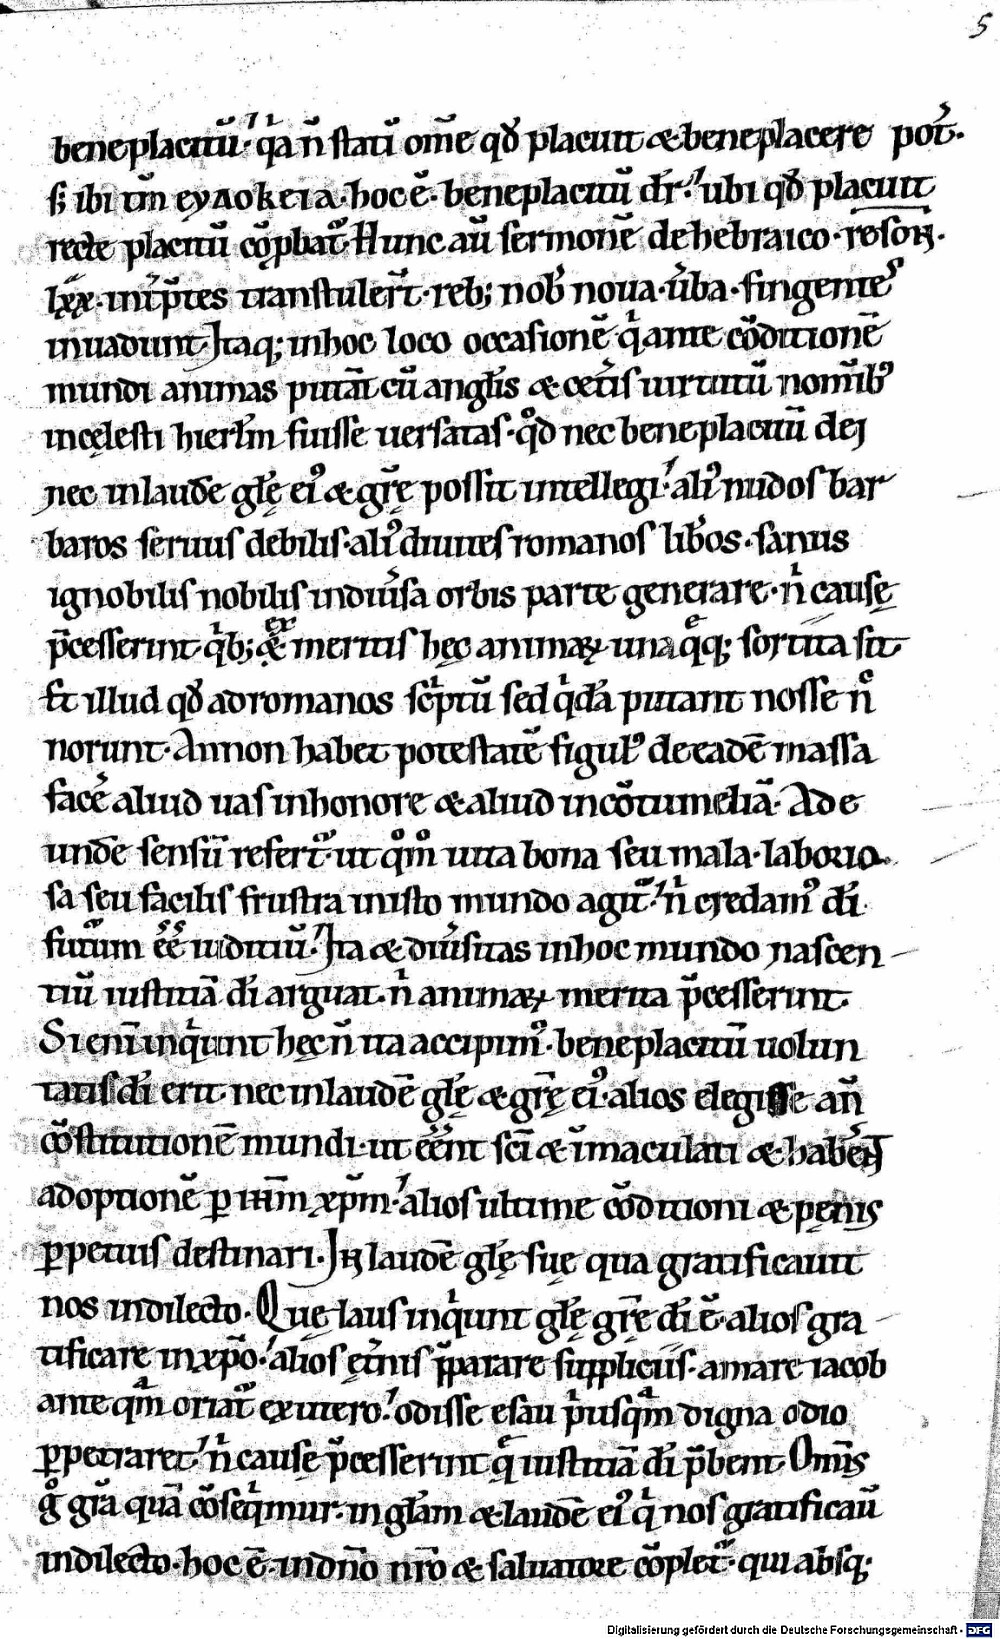 5
beneplacitū· qͥa n̄ statī om̄e qd̕ placuit & beneplacere pot̕·
s; ibi tm̄ ΕΥΔΟΚΕΙΑ· hoc ē· beneplacitū dr̄· ubi qd̕ placuit
recte placitū cōpbat᷑· Hunc aū sermonē de hebraico· roson·
lxx· int̕p̄tes transtuler̄t· reb; nob̕ noua· u̕ba· fingentes
inuadunt Itaq; in hoc loco occasionē qͥ ante cōditionē
mundi animas putāt cū angl̕is & cet̕is uirtutū nomīb᷒
in cęlesti hierl̕m fuisse uersatas· qd̕ nec beneplacitū dei
nec in laude gl̕ę ei᷒ & gr̄ę possit intellegi· ali᷒ nudos bar
baros seruus debilis· ali᷒ diuites romanos lib̕os· sanus
ignobilis nobilis in diu̕sa orbis parte generare· nͥ causę
p̄cesserint· qͥb; ex meritis hęc animaꝝ una qͣq; sortita sit
Et illud qd̕ ad romanos sc̕ptū sed qͥdā putant nosse n̄
norunt· An non habet potestatē figul᷒ de eadē massa
face̕ aliud uas in honore & aliud in cōtumeliā· Ad e
unde sensū refert᷑· ut qm̊ uita bona seu mala· laborio
sa seu facilis frustra in isto mundo agit᷑· nͥ credam᷒ di̕
futurum ēē iuditiū· Ita & diu̕sitas in hoc mundo nascen
tiū iustitiā di̕ arguat· nͥ animaꝝ merita p̄cesserint·
Si enī inqͥunt hęc n̄ ita accipim᷒· beneplacitū uolun
tatis di̕ erit· nec in laudē gl̕ę & gr̄ę ei᷒· alios elegisse an̄
cōstitutionē mundi· ut eēnt sc̄i & īmaculati & habe̕nt
adoptionē ꝑ ihm̄ xp̄m· alios ultime cōditioni & penis
ꝑpetuis destinari· In laudē gl̕ę suę qua gratificauit
nos in dilecto· Quę laus inqͥunt gl̕ę gr̄ę di̕ ē· alios gra
tificare in xp̄o· alios ęt̕nis p̄parare suppliciis· amare iacob
ante qͣm oriat᷑ ex utero· odisse esau pͥusqͣm digna odio
ꝑpetraret· nͥ causę p̄cesserint q̄ iustitiā di̕ p̄bent· Om̄is
gͦ gr̄a quā cōseqͥmur· in gl̕am & laudē ei᷒ qͥ nos gratificauī
in dilecto· hoc ē· in dn̄o nr̄o & saluatore cōplet᷑· qui absq;
Digitalisierung gefördert durch die Deutsche Forschungsgemeinschaft - DFG